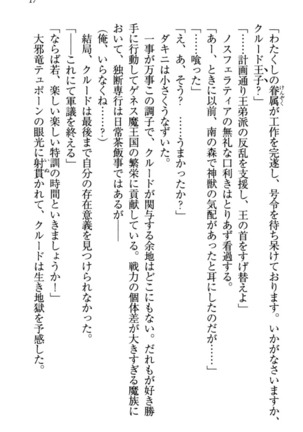 17
「わたくしの眷属が工作を完遂し、号令を待ち呆けております。いかがなさいますか、
クルード王子?」
「……計画通り王弟派の反乱を支援し、王の首をすげ替えよ」
ノスフェラティアの無礼な口利きはとりあず看過する。
「あー、ときに以前、南の森で神獣の気配があったと耳にしたのだが」
「……喰った」
「え、あ、そう? ……うまかったか?」
ダキニは小さくうなずいた。
一事が万事この調子で、クルードが関与する余地はどこにもない。だれもが好き勝
手に行動してゲネス魔王国の繁栄に貢献している。戦力の個体差が大きすぎる魔族に
おいて、独断専行は日常茶飯事ではあるが――
(俺、いらなくね……?)
結局、クルードは最後まで自分の存在意義を見出せず、
「――これにて軍議を終える」
「ならば若、楽しい楽しい特訓の時間といきましょうか!」
大邪竜テュポーンの眼光に射貫かれて、クルードは生き地獄を予感した。